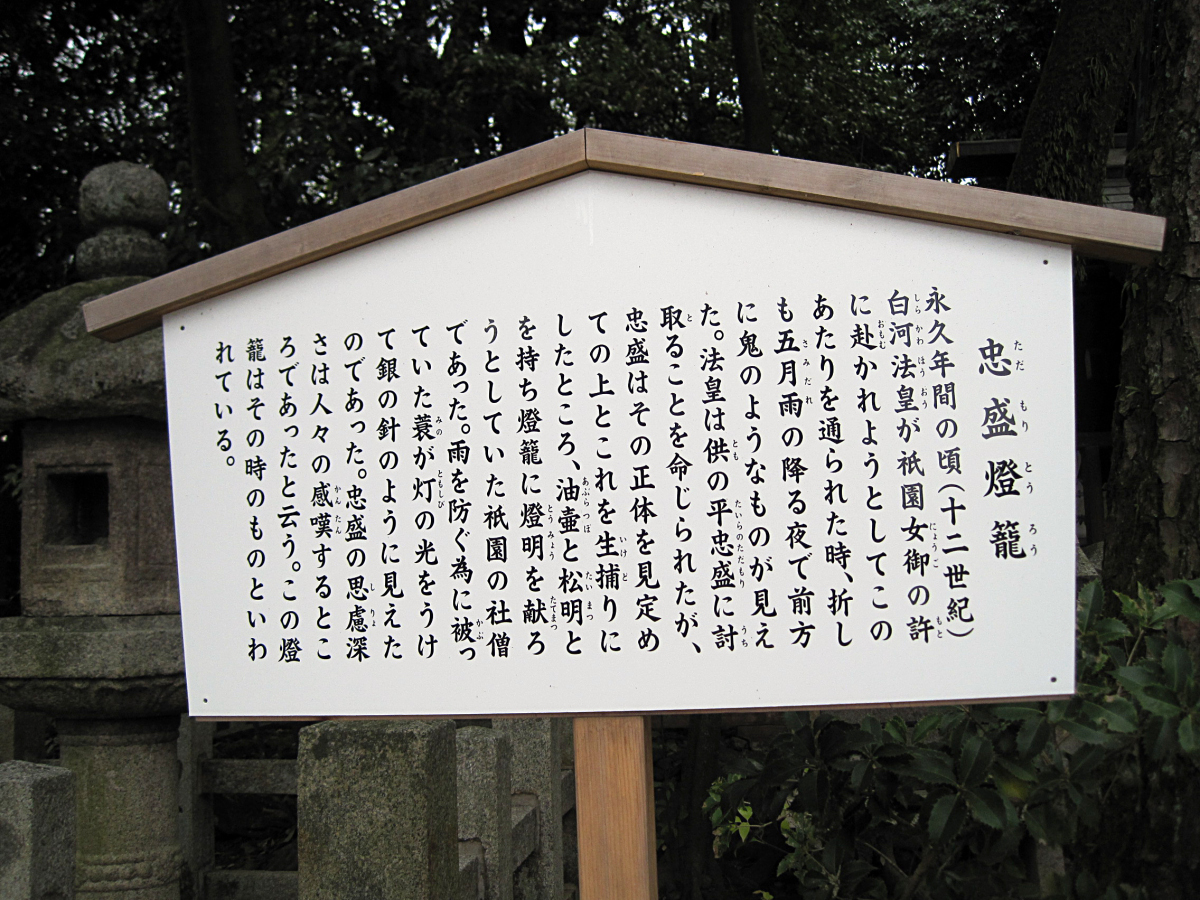 忠盛燈籠
永久年間の頃(十二世紀)
白河法皇が祇園女御の許
に赴かれようとしてこの
あたりを通られた時、折し
も五月雨の降る夜で前方
に鬼のようなものが見え
た。法皇は供の平忠盛に討
取ることを命じられたが、
忠盛はその正体を見定め
ての上とこれを生捕りに
したところ、油壷と松明と
を持ち燈籠に燈明を献ろ
うとしていた祇園の社僧
であった。雨を防ぐ為に被っ
ていた蓑が灯の光をうけ
て銀の針のように見えた
のであった。忠盛の思慮深
さは人々の感嘆するとこ
ろであったと云う。この燈
籠はその時のものといわ
れている。